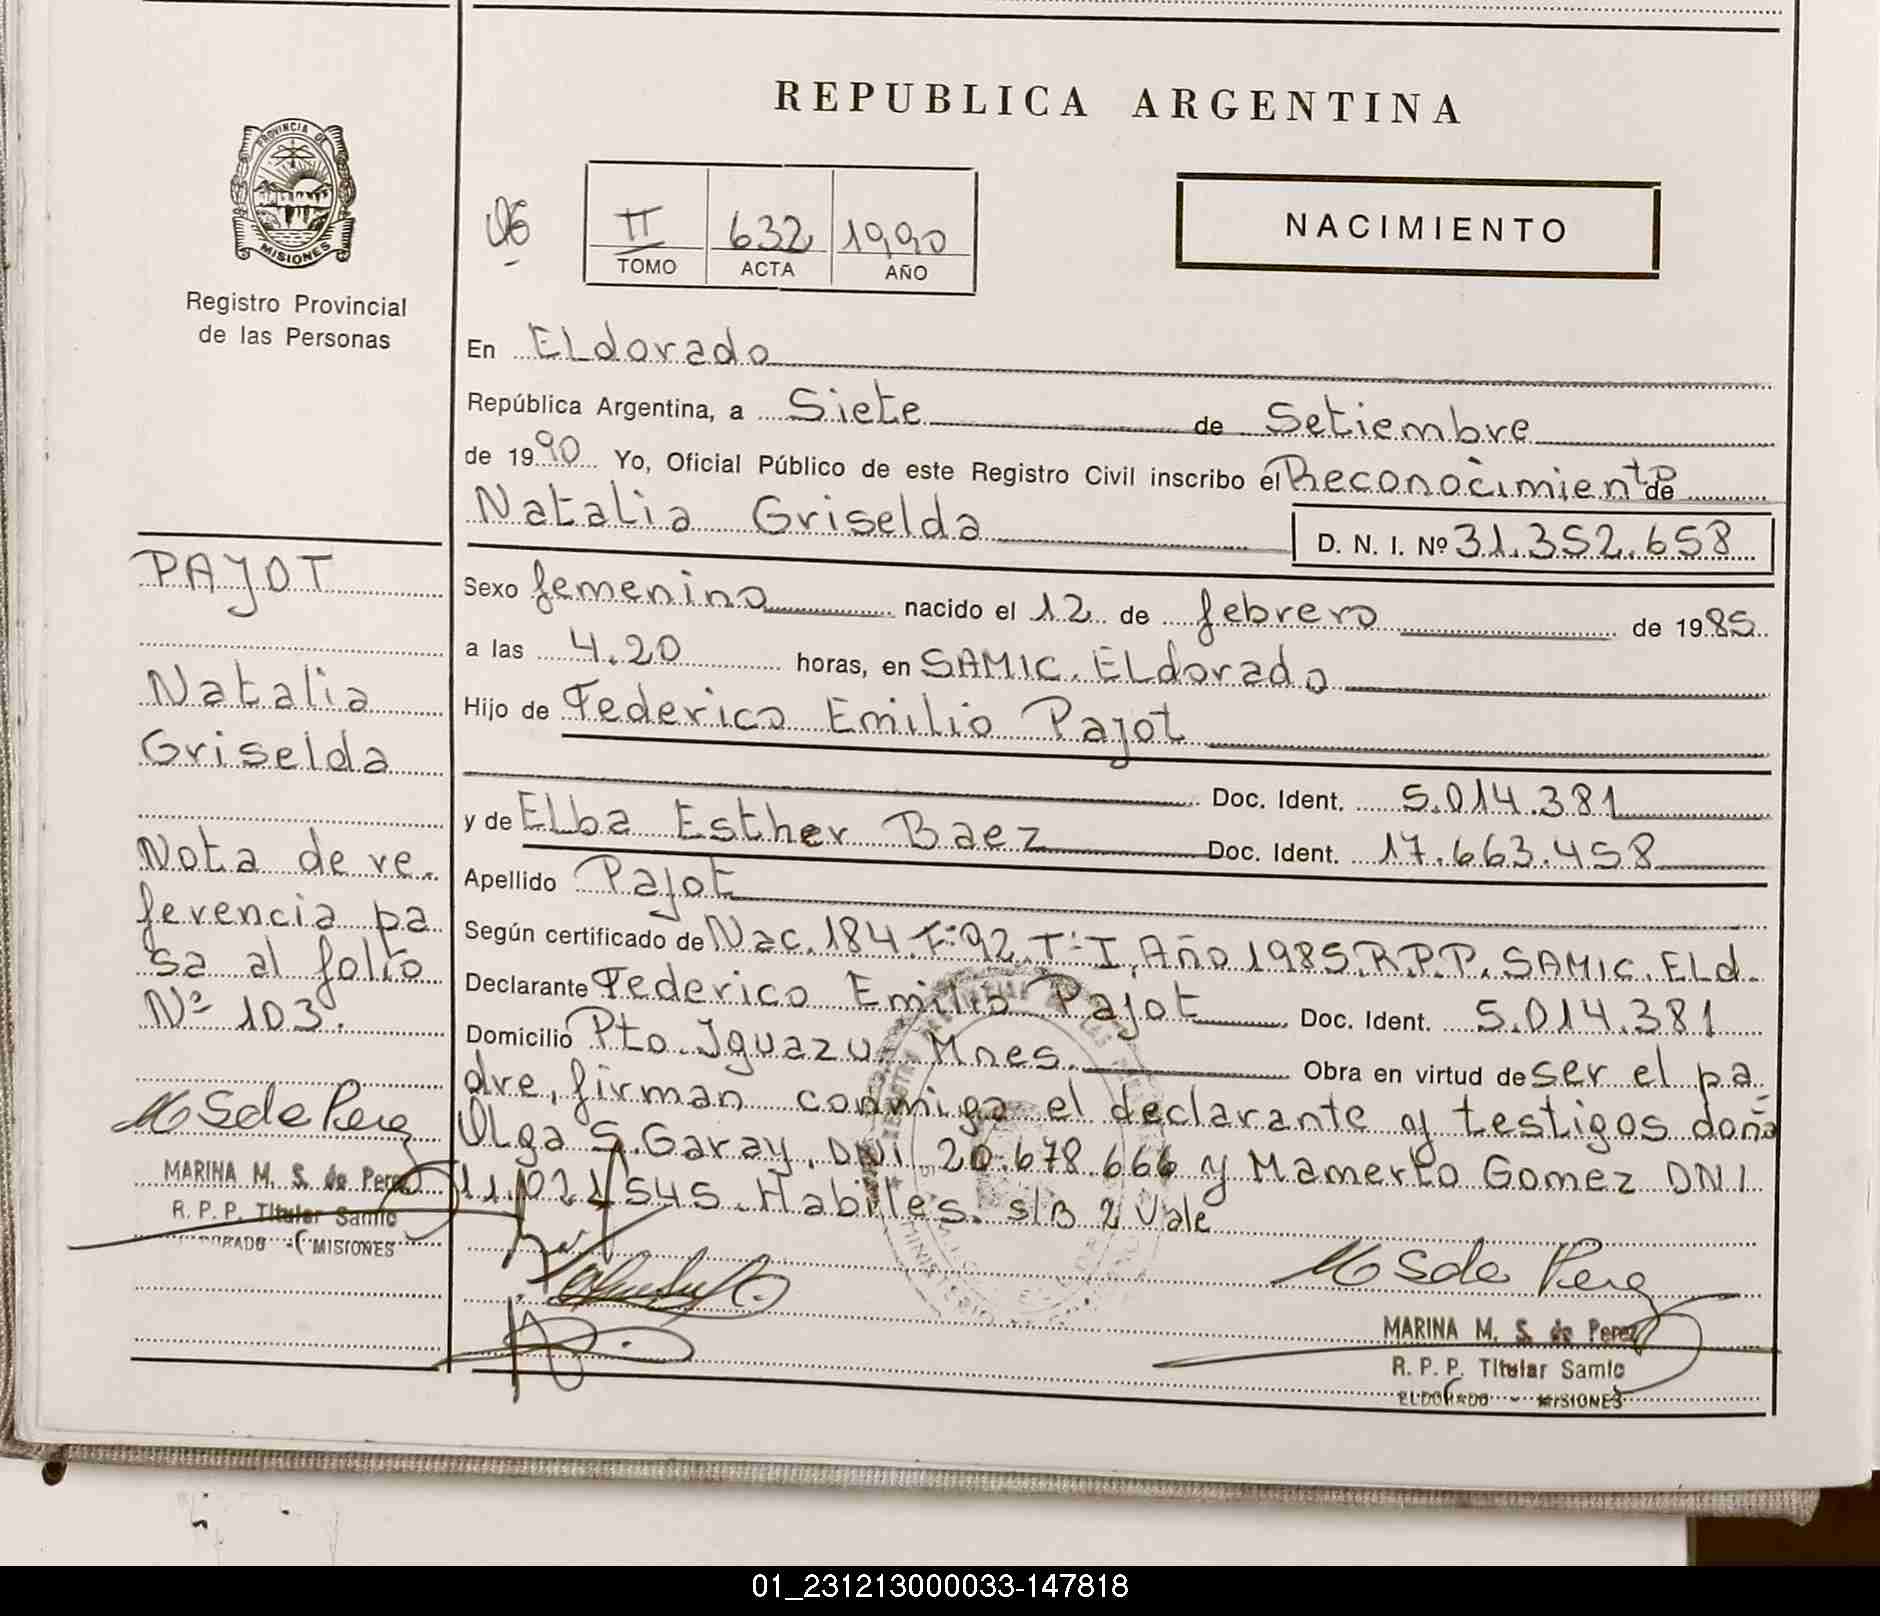 REPUBLICA ARGENTINA
PROVINCIA DE
MISIONES
Registro Provincial
de las Personas
II 632 1990
TOMO ACTA AÑO
NACIMIENTO
En Eldorado
República Argentina, a Siete de Setiembre
de 1990 Yo, Oficial Público de este Registro Civil inscribo el Reconocimiento de
Natalia Griselda D. N. I. Nº 31.352.658
Sexo femenino nacido el 12 de febrero de 1985
a las 4.20 horas, en SAMIC. ELdorado
Hijo de Federico Emilio Pajot
Doc. Ident. 5.014.381
y de Elba Esther Baez Doc. Ident. 17.663.458
Apellido Pajot
Según certificado de Nac. 184. Fº 92. Tº I, Año 1985. R.P.P. SAMIC. ELd.
Declarante Federico Emilio Pajot Doc. Ident. 5.014.381
Domicilio Pto. Iguazu Mnes. Obra en virtud de ser el pa
dre, firman conmigo el declarante y testigos doña
Olga S. Garay, DNI 20.678.666 y Mamerto Gomez DNI
11.021.545. Habiles. s/B 2 Vale
PAJOT
Natalia
Griselda
Nota de re.
ferencia pa
sa al folio
Nº 103.
M S de Perez
MARINA M. S. de Perez
R. P. P. Titular Samic
ELDORADO - MISIONES
M S de Perez
MARINA M. S. de Perez
R. P. P. Titular Samic
ELDORADO - MISIONES
01_231213000033-147818